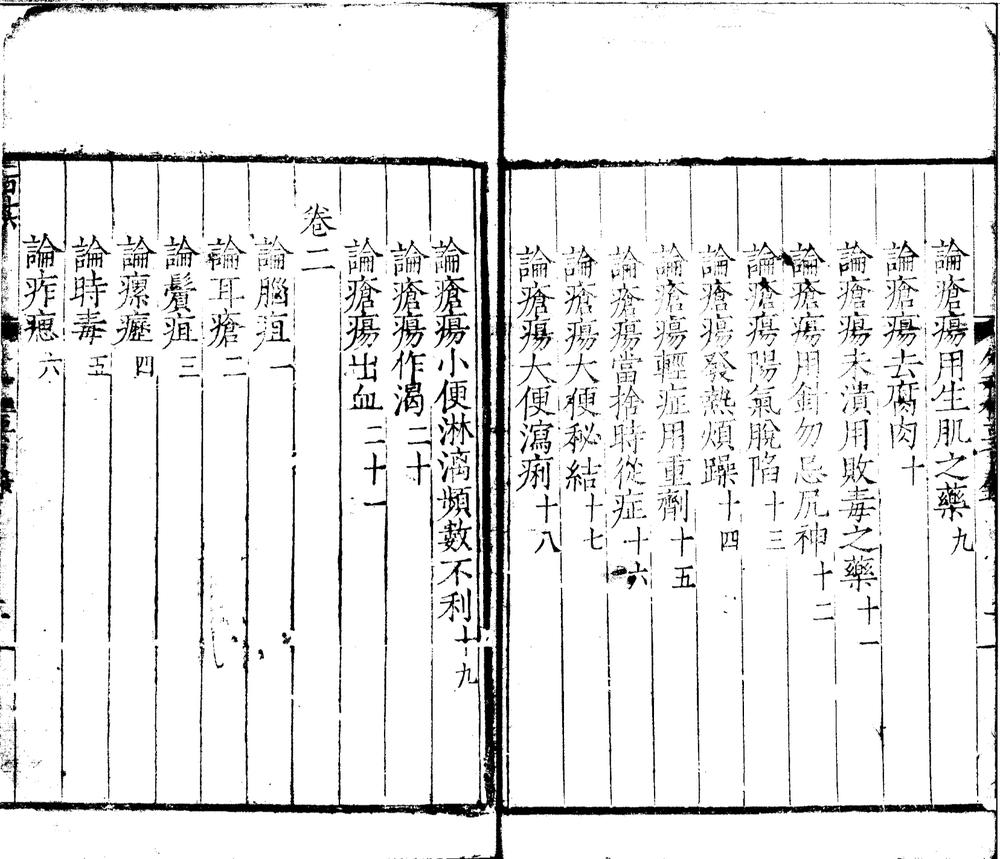 論瘡瘍用生肌之藥九
論瘡瘍去腐肉十
論瘡瘍未潰用敗毒之藥十一
論瘡瘍用針勿忌尻神十二
論瘡瘍陽氣脫陷十三
論瘡瘍發熱煩躁十四
論瘡瘍輕症用重劑十五
論瘡瘍當捨時從症十六
論瘡瘍大便秘結十七
論瘡瘍大便瀉痢十八
論瘡瘍小便淋漓頻數不利十九
論瘡瘍作渴二十
論瘡瘍出血二十一
卷二
論腦疽一
論耳瘡二
論鬢疽三
論瘰癧四
論時毒五
論痄腮六